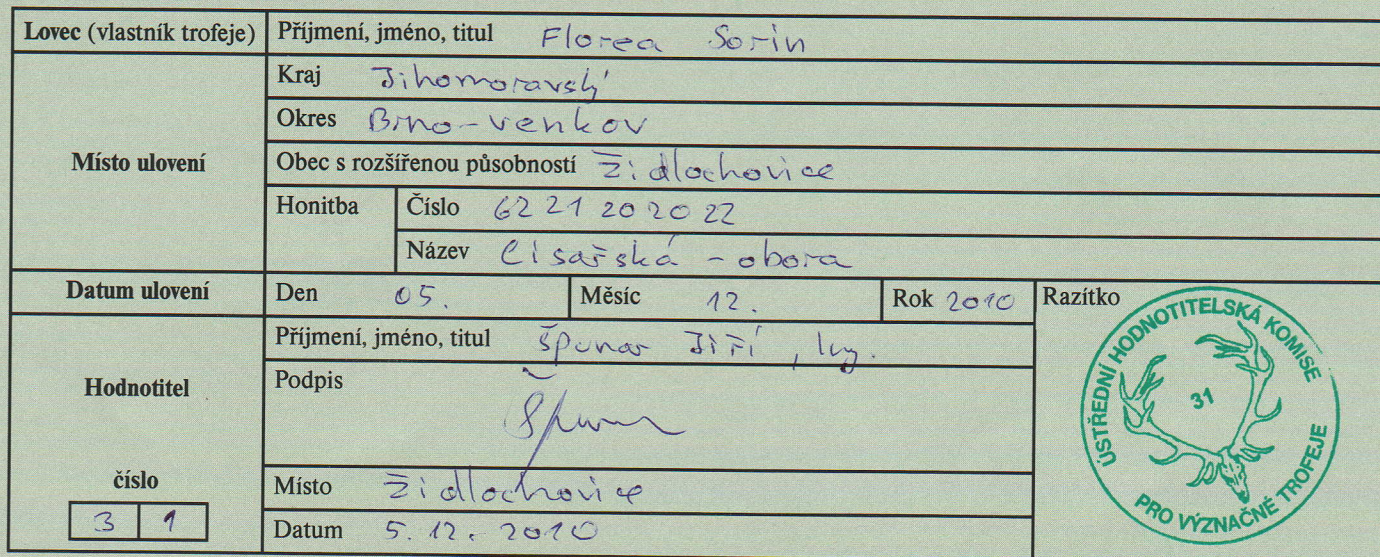 Lovec (vlastník trofeje) Příjmení, jméno, titul Florea Sorin
Místo ulovení
Kraj Jihomoravský
Okres Brno-venkov
Obec s rozšířenou působností Židlochovice
Honitba Číslo 6221202022
Název Císařská - obora
Datum ulovení Den 05. Měsíc 12. Rok 2010 Razítko
Hodnotitel
Příjmení, jméno, titul Špunar Jiří, Ing.
Podpis
číslo
3 1
Místo Židlochovice
Datum 5.12.2010
ÚSTŘEDNÍ HODNOTITELSKÁ KOMISE
31
PRO VÝZNAČNÉ TROFEJE